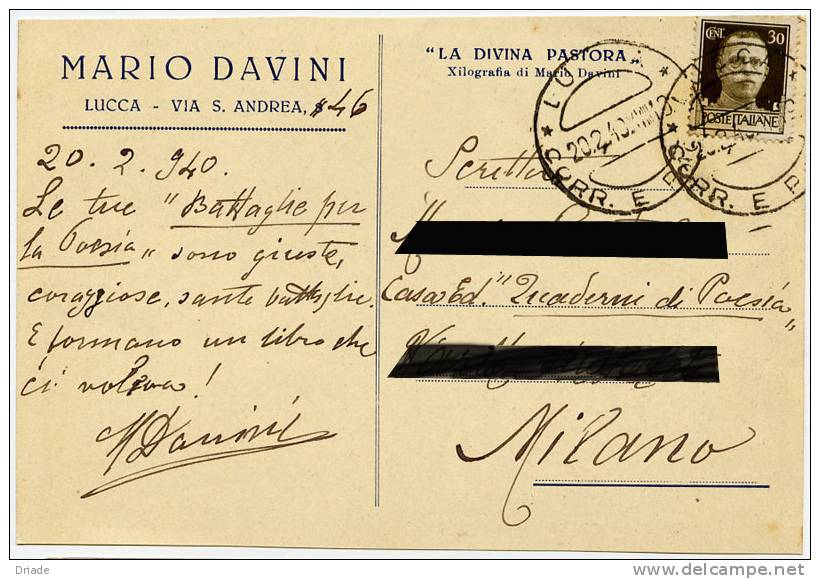 MARIO DAVINI
LUCCA - VIA S. ANDREA, 46
20. 2. 940.
Le tue "Battaglie per
la Poesia" sono giuste,
coraggiose, sante battaglie.
E formano un libro che
ci voleva!
MDavini
"LA DIVINA PASTORA"
Xilografia di Mario Davini
CENT. 30
POSTE ITALIANE
20.2.40.XVIII
CORR. E P
CORR. E P
Casa Ed. "Quaderni di Poesia"
Milano
Driade
delcampe.net